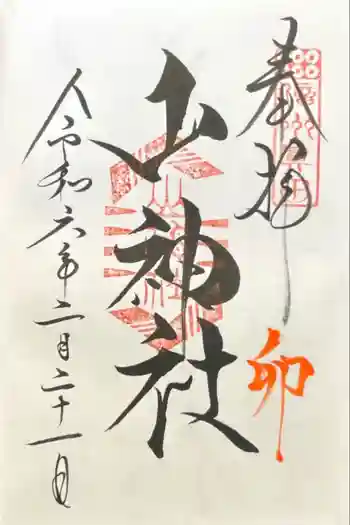 奉拝
卯
山神社
令和六年二月二十一日